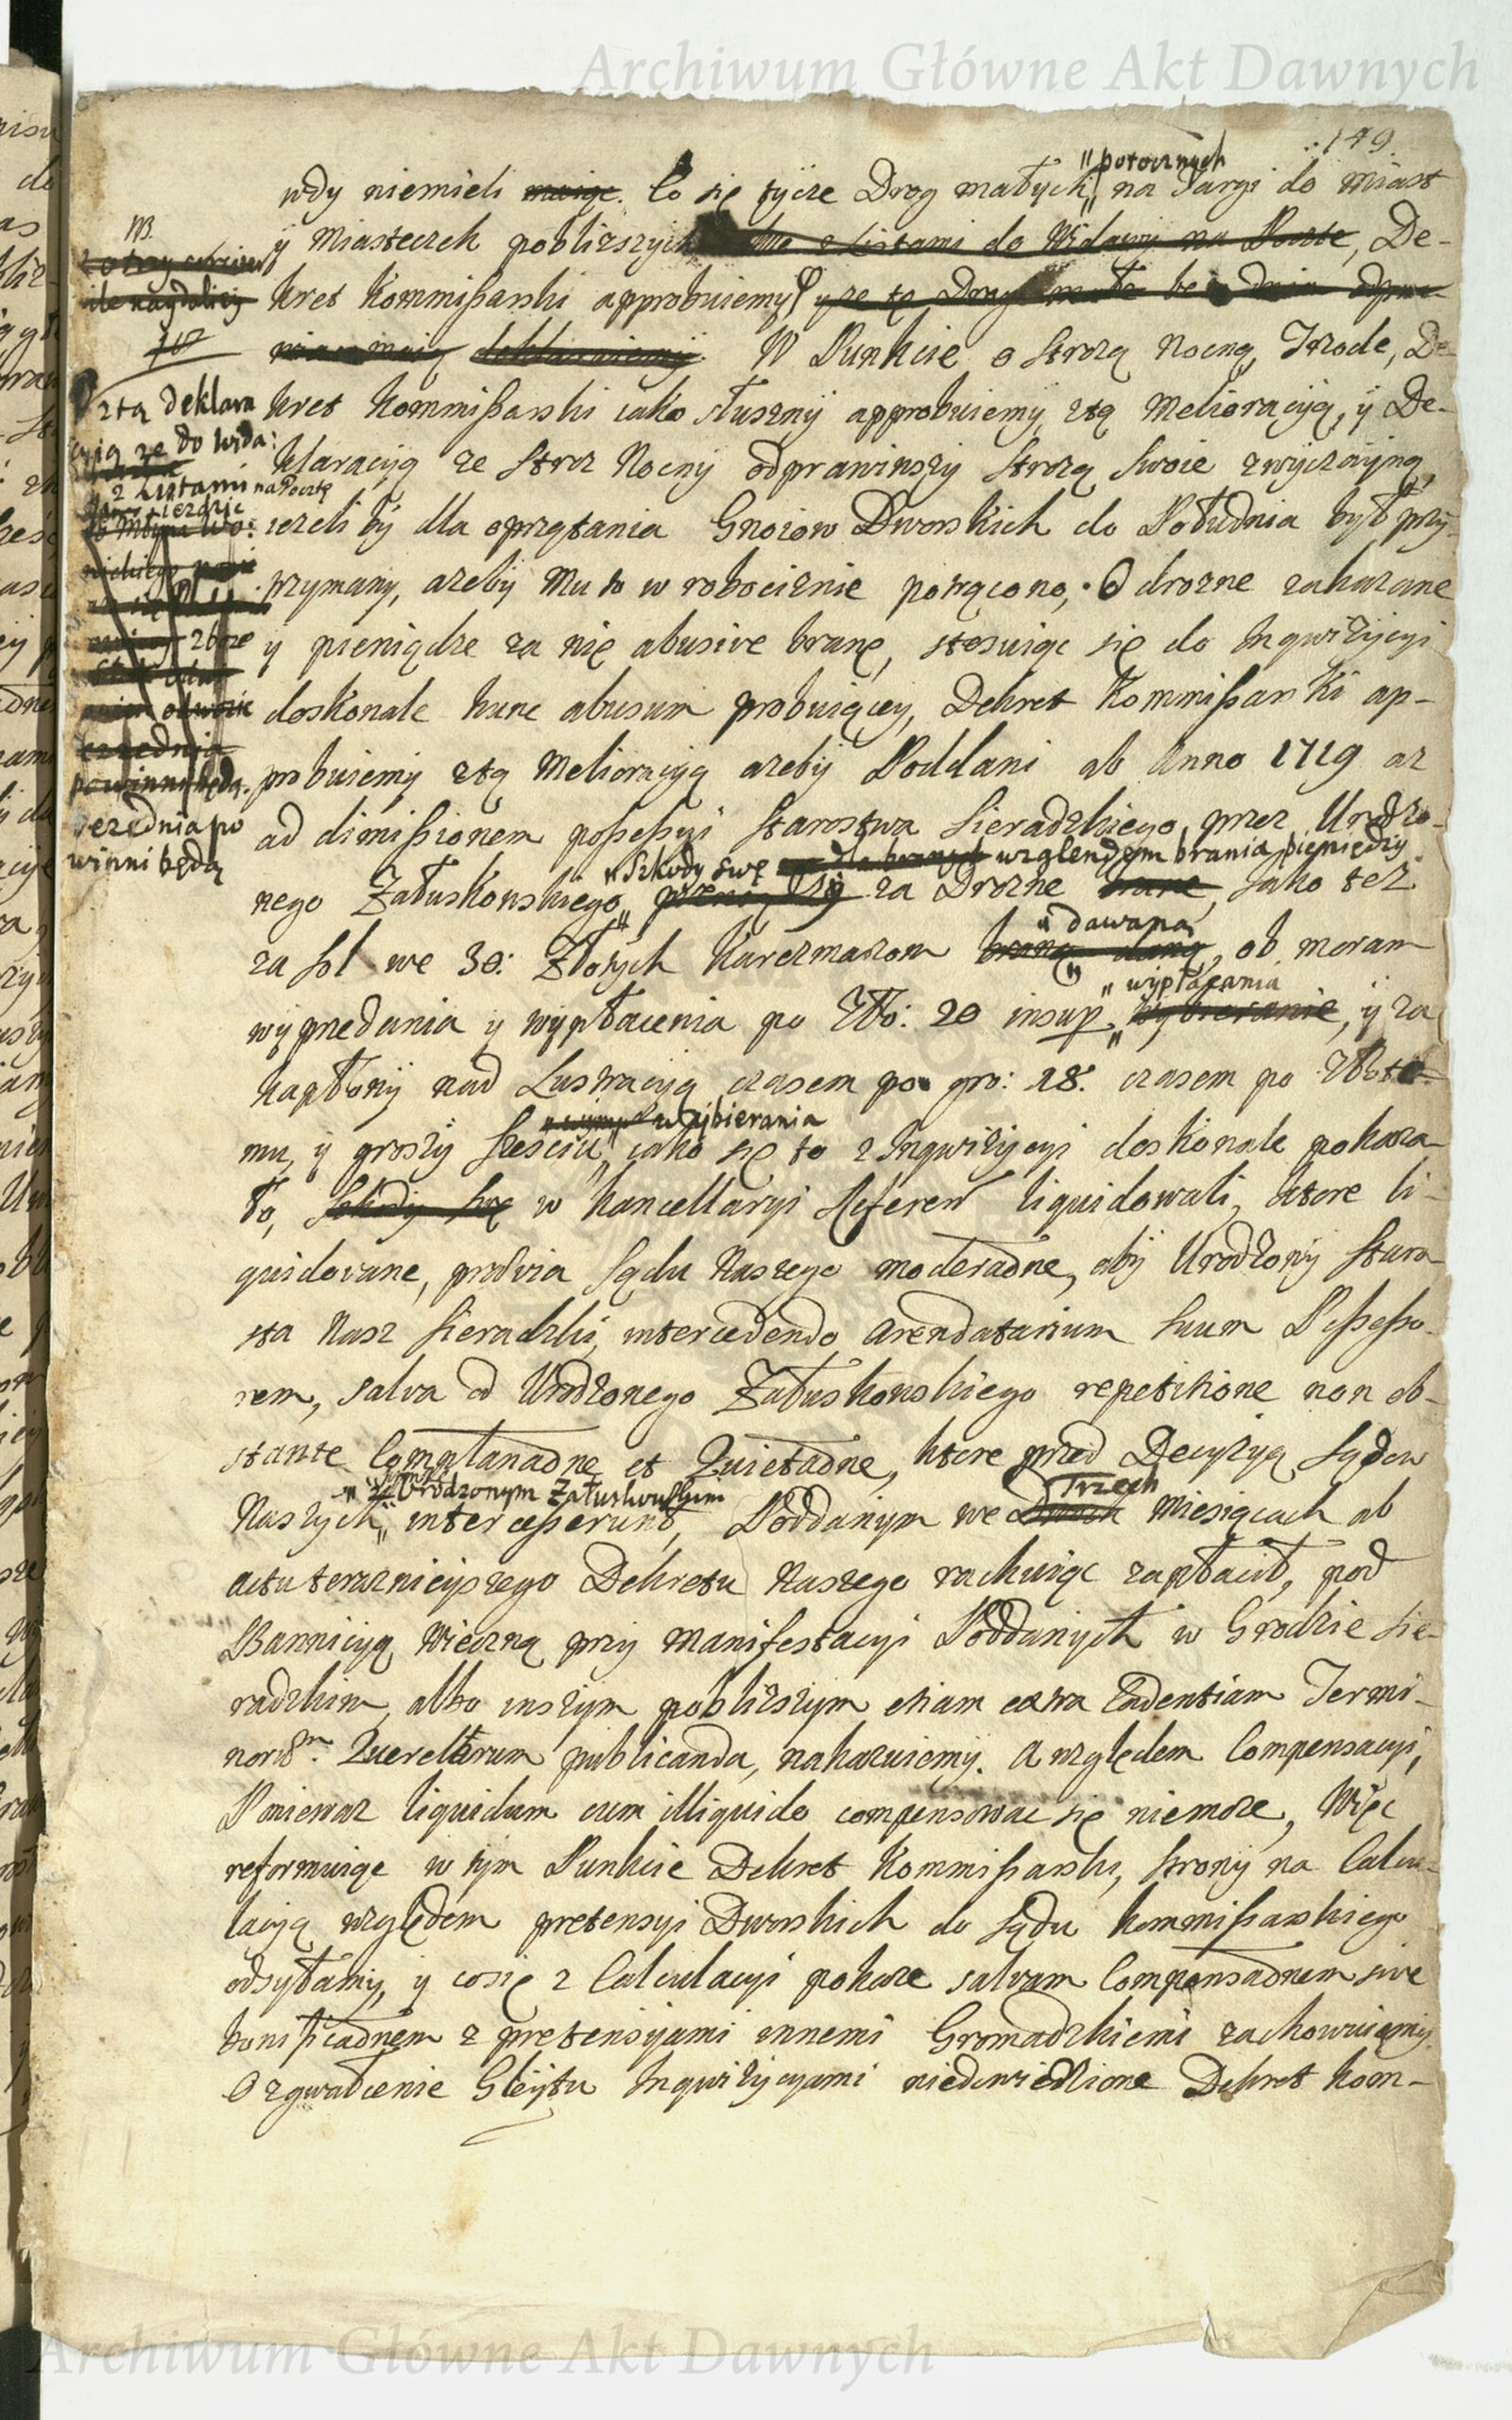 Archiwum Główne Akt Dawnych
149
wdy niemieli maiąc. Co się tycze Drog małych "potocznych" na Targi do Miast
y Miasteczek pobliższych z Listami do Widawy na Poczte, De-
kret Kommißarski approbuiemy y ze te Drogi małe bez dnia odpra-
wiać maią deklaruiemy. W Punkcie o Strozą Nocną, Trzode, De-
kret Kommißarski iako słuszny approbuiemy, ztą Melioracyią, y De-
klaracyią ze Stroz Nocny odprawiwszy Strozą Swoie zwyczayną,
iezeli by dla oprzątania Gnoiow Dworskich do Południa był przy-
trzymany, azeby Mu to w robociznie potrącono, O drozne zakazane
y pieniądze za nię abusive brane, stosuiąc się do Inqwizycyi
doskonale hunc abusum probuiącey, Dekret Kommißarski ap-
probuiemy ztą Melioracyią azeby Poddani ab Anno 1719 az
ad dimißionem poßeßyi Starostwa Sieradzkiego, przez Urodzo-
"Szkody swę dla branych wzglendem brania pieniędzy
nego Załuskowskiego" za Drozne brane, Jako tez
"dawaną
za sol we 30: Złotych Karczmarzom braną daną, ob moram
"wypłacania
wyprzedania y wypłacenia po Zło: 20 insup. wybieranie, y za
kapłony nad Lustracyią czasem po gro: 18. czasem po Złote-
wybierania
mu, y groszy sześciu" iako się to z Inqwizycyi doskonale pokaza-
ło, Szkody swę w kancellaryi Referen liquidowali, ktore li-
quidowane, prævia Sądu Naszego moderaōne, aby Urodzony Staro-
sta Nasz Sieradzki, intercedendo Arendatarium suum Poßeßo-
rem, salva od Urodzonego Załuskowskiego repetitione non ob-
stante Complanaōne et Quietaōne, ktore przed Decyzyą Sądow
z Urodzonym Załuskowskim Trzech
Naszych" interceßerunt, Poddanym we Dwoch Miesiącach ab
actu teraznieyszego Dekretu Naszego rachuiąc zapłacił, pod
Bannicyą Wieczną przy Manifestacyi Poddanych w Grodzie Sie-
radzkim, albo inszym pobliższym etiam extra Cadentiam Termi-
nor. Querelarum publicanda, nakazuiemy. A względem Compensacyi,
Poniewaz liquidum cum illiquido compensowac się niemoze, Więc
reformuiąc w tym Punkcie Dekret Kommißarski, strony na Calcu-
lacyą względem pretensyi Dworskich do Sądu Kommißarskiego
odsyłamy, y cosię z Calculacyi pokaze salvam Compensaōnem sive
bonificaōnem z pretensyiami innemi Gromadzkiemi zachowuiemy.
O zgwałcenie Gleytu Inqwizycyami niedowiedlione Dekret Kom-
NB.
ztą deklara
cyią ze do Wida:
z Listami na Pocztę
iezdzic
bezednia po
winni będą
Archiwum Główne Akt Dawnych